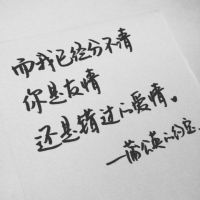 而我已经分不清
你是友情
还是错过的爱情。
—蒲公英的约定